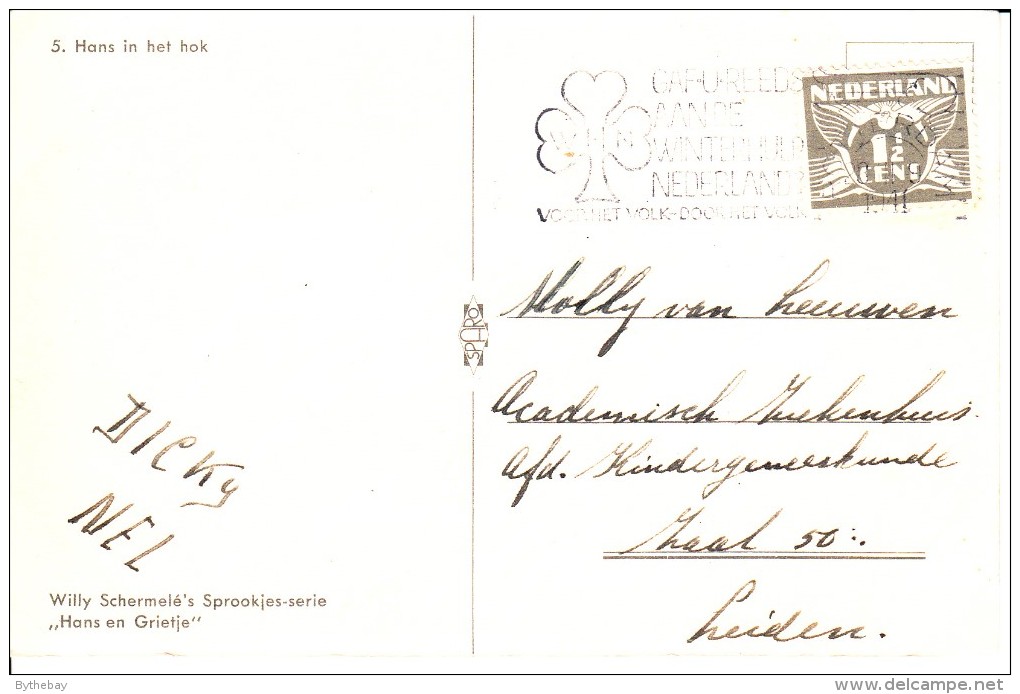 5. Hans in het hok
GAF U REEDS
AAN DE
WINTERHULP
NEDERLAND?
VOOR HET VOLK-DOOR HET VOLK
NEDERLAND
1½
CENT
1941
SPARO
Molly van Leeuwen
Academisch Ziekenhuis.
afd. Kindergeneeskunde
Zaal 50:.
Leiden.
DICKY
NEL
Willy Schermelé's Sprookjes-serie
„Hans en Grietje"
Bythebay
delcampe.net